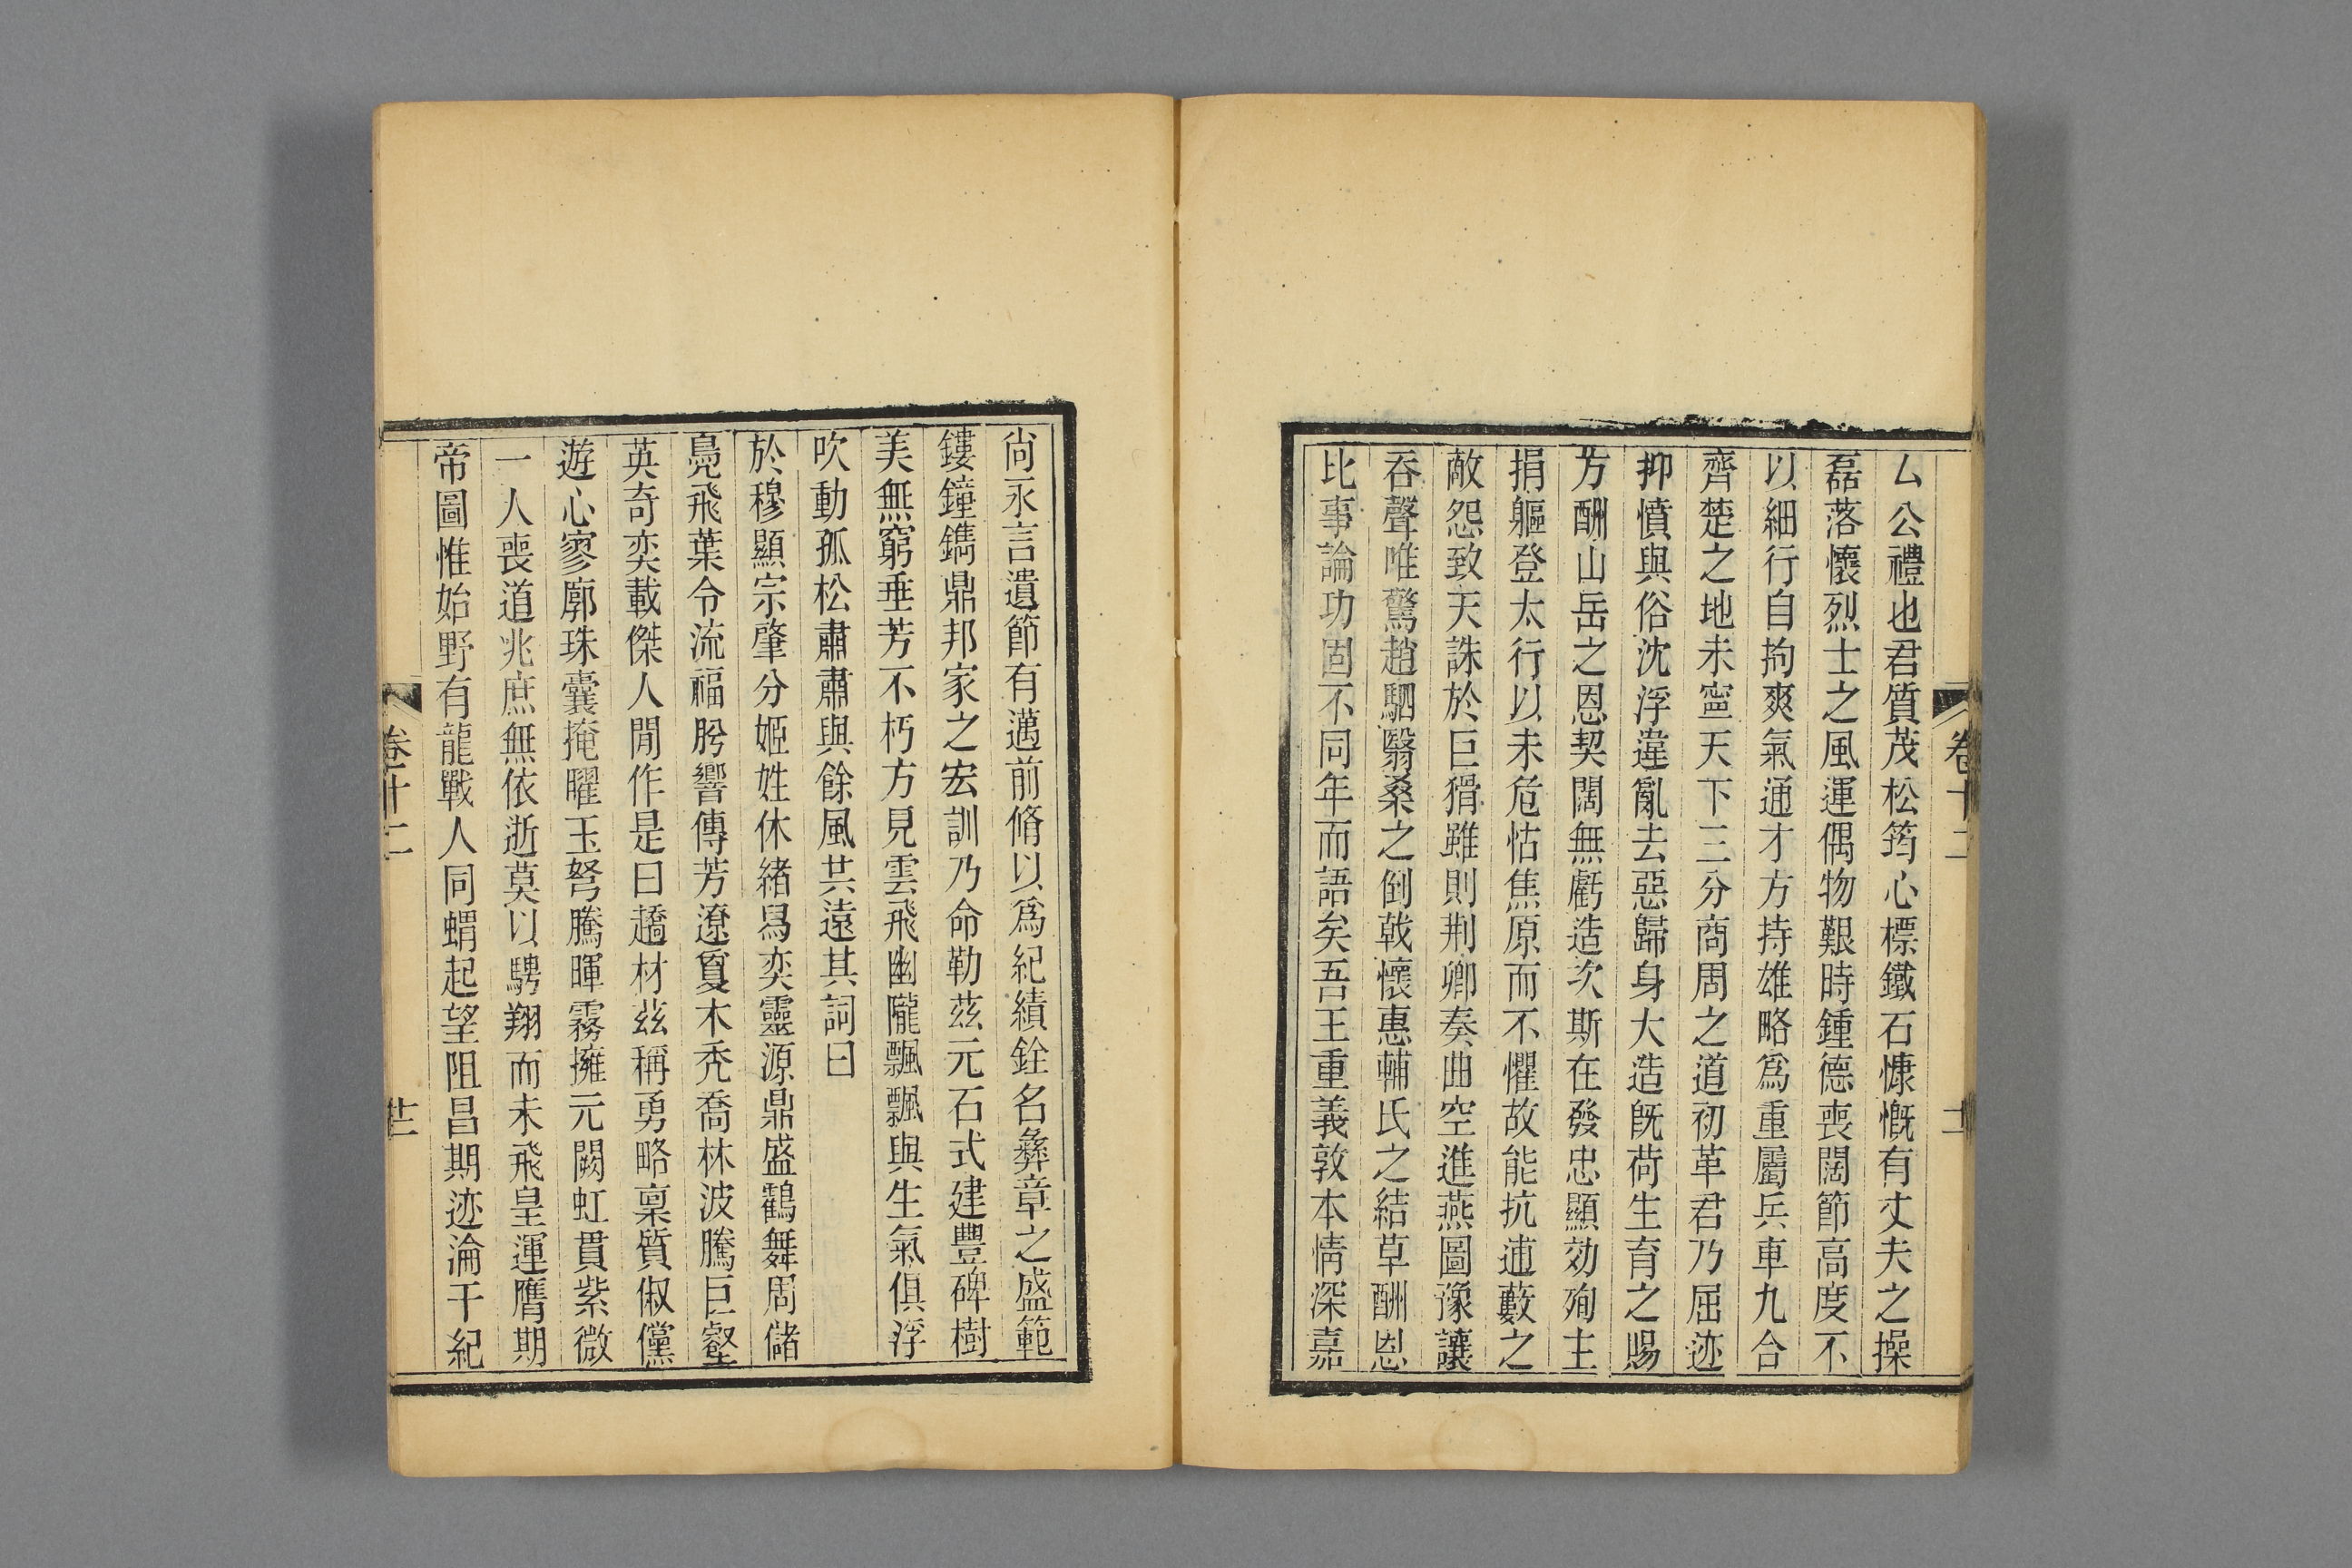 厶公禮也君質茂松筠心標鐵石慷慨有丈夫之操
磊落懷烈士之風運偶物艱時鍾德喪闊節高度不
以細行自拘爽氣通才方持雄略爲重屬兵車九合
齊楚之地未寧天下三分商周之道初革君乃屈迹
抑憤與俗沈浮違亂去惡歸身大造旣荷生育之賜
方酬山岳之恩契闊無虧造次斯在發忠顯効殉主
捐軀登太行以未危怙焦原而不懼故能抗逋藪之
敵怨致天誅於巨猾雖則荆卿奏曲空進燕圖豫讓
吞聲唯驚趙駟翳桑之倒戟懷惠輔氏之結草酬恩
比事論功固不同年而語矣吾王重義敦本情深嘉
卷十二
尙永言遺節有邁前脩以爲紀績銓名彝章之盛範
鏤鐘鐫鼎邦家之宏訓乃命勒茲元石式建豐碑樹
美無窮垂芳不朽方見雲飛幽隴飄飄與生氣俱浮
吹動孤松肅肅與餘風共遠其詞曰
於穆顯宗肇分姬姓休緒舄奕靈源鼎盛鶴舞周儲
鳧飛葉令流福肹響傳芳遼夐木秃喬林波騰巨壑
英奇奕載傑人閒作是曰趫材茲稱勇略稟質俶儻
遊心寥廓珠囊掩曜玉弩騰暉霧擁元闕虹貫紫微
一人喪道兆庶無依逝莫以騁翔而未飛皇運膺期
帝圖惟始野有龍戰人同蝟起望阻昌期迹淪干紀
卷十二